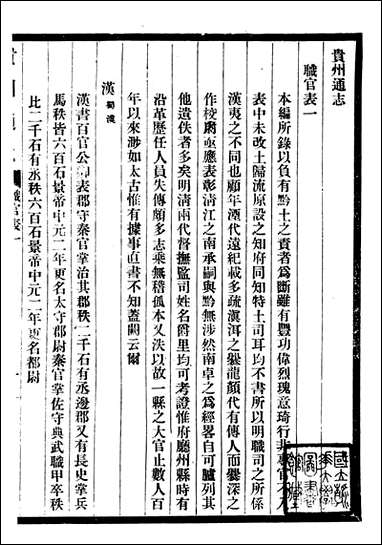 貴州通志
職官表一
本編所錄以負有黔土之責者為斷雖有豐功偉烈瑰意琦行非
表中未改土歸流原設之知府同知特土司耳均不書所以明職司之所係
漢夷之不同也顧年湮代遠紀載多疏滇洱之爨龍顏代有傳人而爨深之
作校亟應表彰清江之南承嗣與黔無涉然南卓之為經畧自可臚列其
他遺佚者多矣明清兩代督撫監司姓名爵里均可考證惟府廳州縣時有
沿革歷任人員失傳頗多志乘無稽孤本又泆以故一縣之大官止數人百
年以來渺如太古惟有據事直書不知蓋闕云爾
漢 蜀漢
漢書百官公卿表郡守秦官掌治其郡秩二千石有丞邊郡又有長史掌兵
馬秩皆六百石景帝中元二年更名太守郡尉秦官掌佐守典武職甲卒秩
比二千石有丞秩六百石景帝中元二年更名都尉